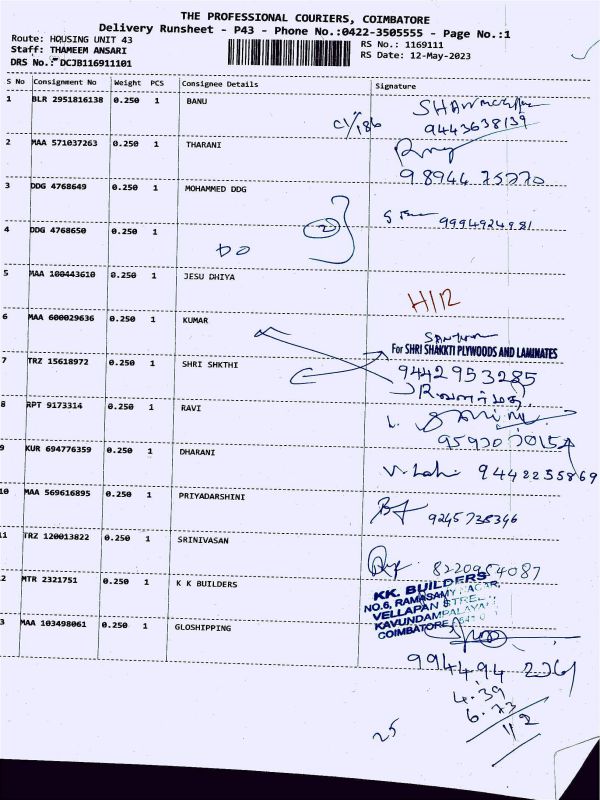 THE PROFESSIONAL COURIERS, COIMBATORE
Delivery Runsheet - P43 - Phone No.:0422-3505555 - Page No.:1
Route: HOUSING UNIT 43
RS No.: 1169111
Staff: THAMEEM ANSARI
RS Date: 12-May-2023
DRS No.: DCJB116911101
S No Consignment No Weight PCS Consignee Details Signature
1 BLR 2951816138 0.250 1 BANU
9443638139
2 MAA 571037263 0.250 1 THARANI
98944 75270
3 DDG 4768649 0.250 1 MOHAMMED DDG
2
9994924981
4 DDG 4768650 0.250 1
DO
5 MAA 100443610 0.250 1 JESU DHIYA
H/R
6 MAA 600029636 0.250 1 KUMAR
For SHRI SHAKKTI PLYWOODS AND LAMINATES
7 TRZ 15618972 0.250 1 SHRI SHKTHI
9442953285
8 RPT 9173314 0.250 1 RAVI
9 KUR 694776359 0.250 1 DHARANI
9442255869
10 MAA 569616895 0.250 1 PRIYADARSHINI
9245735346
11 TRZ 120013822 0.250 1 SRINIVASAN
8220954087
12 MTR 2321751 0.250 1 K K BUILDERS
KK. BUILDERS
NO.6, RAMASAMY NAGAR,
VELLAPAN STREET,
KAVUNDAMPALAYAM
COIMBATORE
13 MAA 103498061 0.250 1 GLOSHIPPING
4.39
6.73
112
25